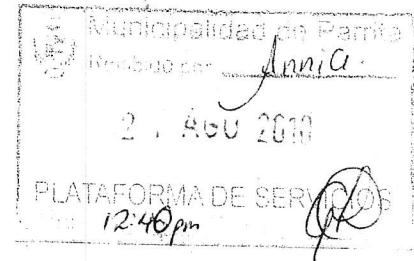 Municipalidad de Parrita
Recibido por Annia.
2 AGO 2010
PLATAFORMA DE SERVICIOS
12:40 pm